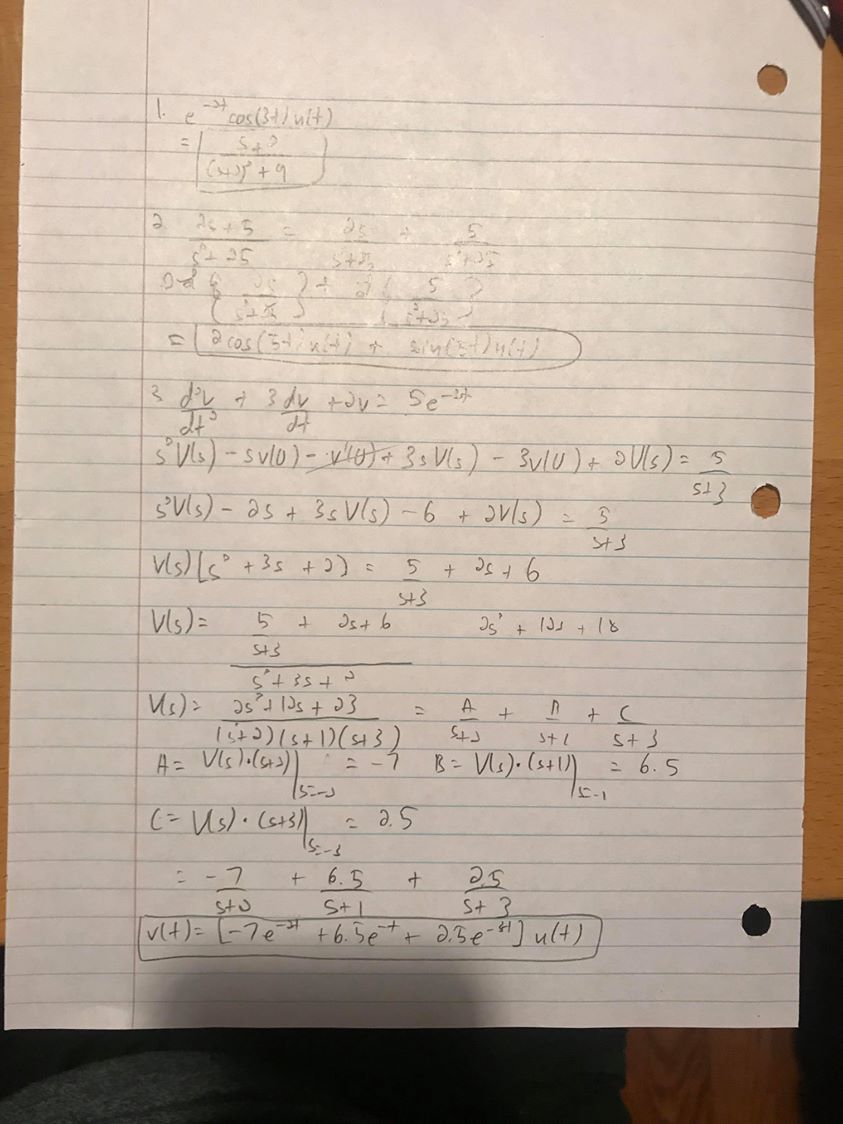 1. e^-2t cos(3t) u(t)
= s+2 / (s+2)² + 9
2 2s+5 / s²+25 = 2s / s²+25 + 5 / s²+25
{ 2s / s²+25 } + { 5 / s²+25 }
= 2cos(5t)u(t) + sin(5t)u(t)
3 d²v/dt² + 3 dv/dt + 2v = 5e
s²V(s) - sv(0) - v'(0) + 3sV(s) - 3v(0) + 2V(s) = 5 / s+3
s²V(s) - 2s + 3sV(s) - 6 + 2V(s) = 5 / s+3
V(s)[s² + 3s + 2] = 5 / s+3 + 2s + 6
V(s) = 5 / s+3 + 2s+6 / s² + 3s + 2 2s² + 12s + 18
V(s) = 2s² + 12s + 23 / (s+2)(s+1)(s+3) = A / s+2 + B / s+1 + C / s+3
A = V(s)·(s+2)| s=-2 = -7 B = V(s)·(s+1)| s=-1 = 6.5
C = V(s)·(s+3)| s=-3 = 2.5
= -7 / s+2 + 6.5 / s+1 + 2.5 / s+3
v(t) = [-7e^-2t + 6.5e^-t + 2.5e^-3t] u(t)